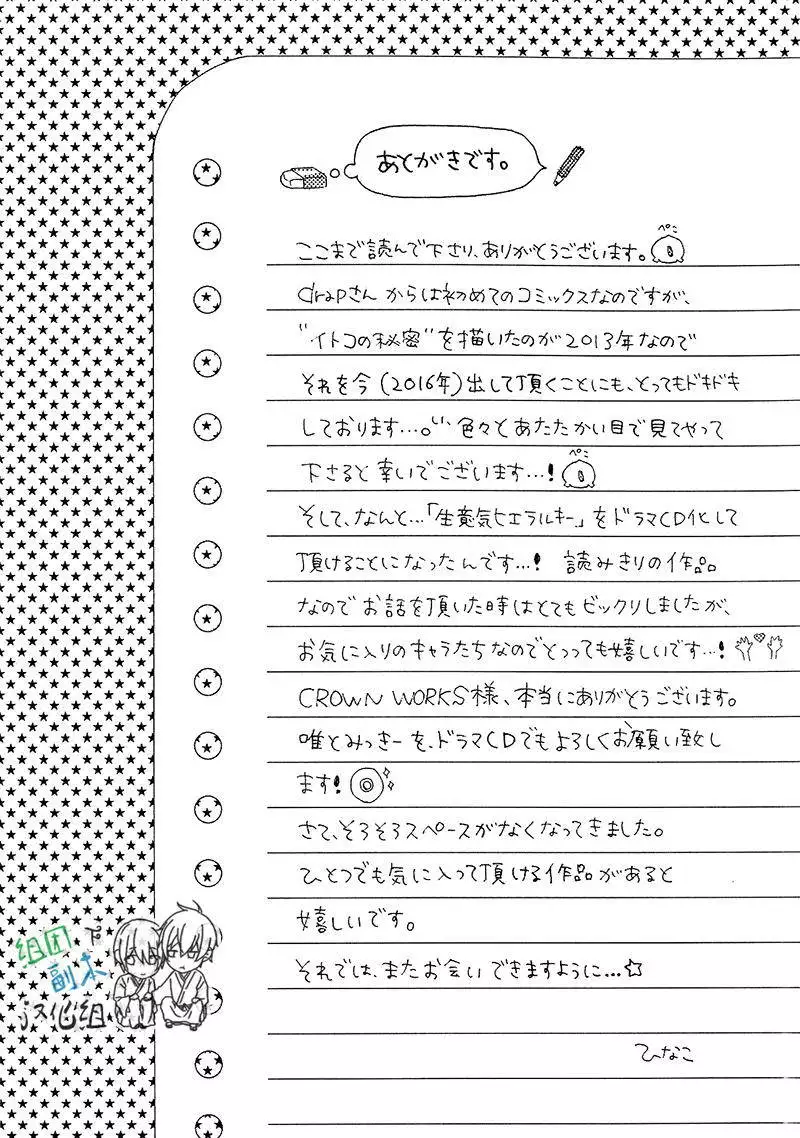 あとがきです。
ぺこ
ここまで読んで下さり、ありがとうございます。
drapさんからは初めてのコミックスなのですが、
"イトコの秘密"を描いたのが2013年なので
それを今(2016年)出して頂くことにも、とってもドキドキ
しております…。色々とあたたかい目で見てやって
ぺこ
下さると幸いでございます…!
そして、なんと…「生意気ヒエラルキー」をドラマCD化して
頂けることになったんです…! 読みきりの作品
なのでお話を頂いた時はとてもビックリしましたが、
お気に入りのキャラたちなのでとっっても嬉しいです…!
CROWN WORKS様、本当にありがとうございます。
唯とみっきーを、ドラマCDでもよろしくお願い致し
ます!
さて、そろそろスペースがなくなってきました。
ひとつでも気に入って頂ける作品があると
嬉しいです。
それでは、またお会いできますように…☆
ひなこ
组团下
副本
汉化组